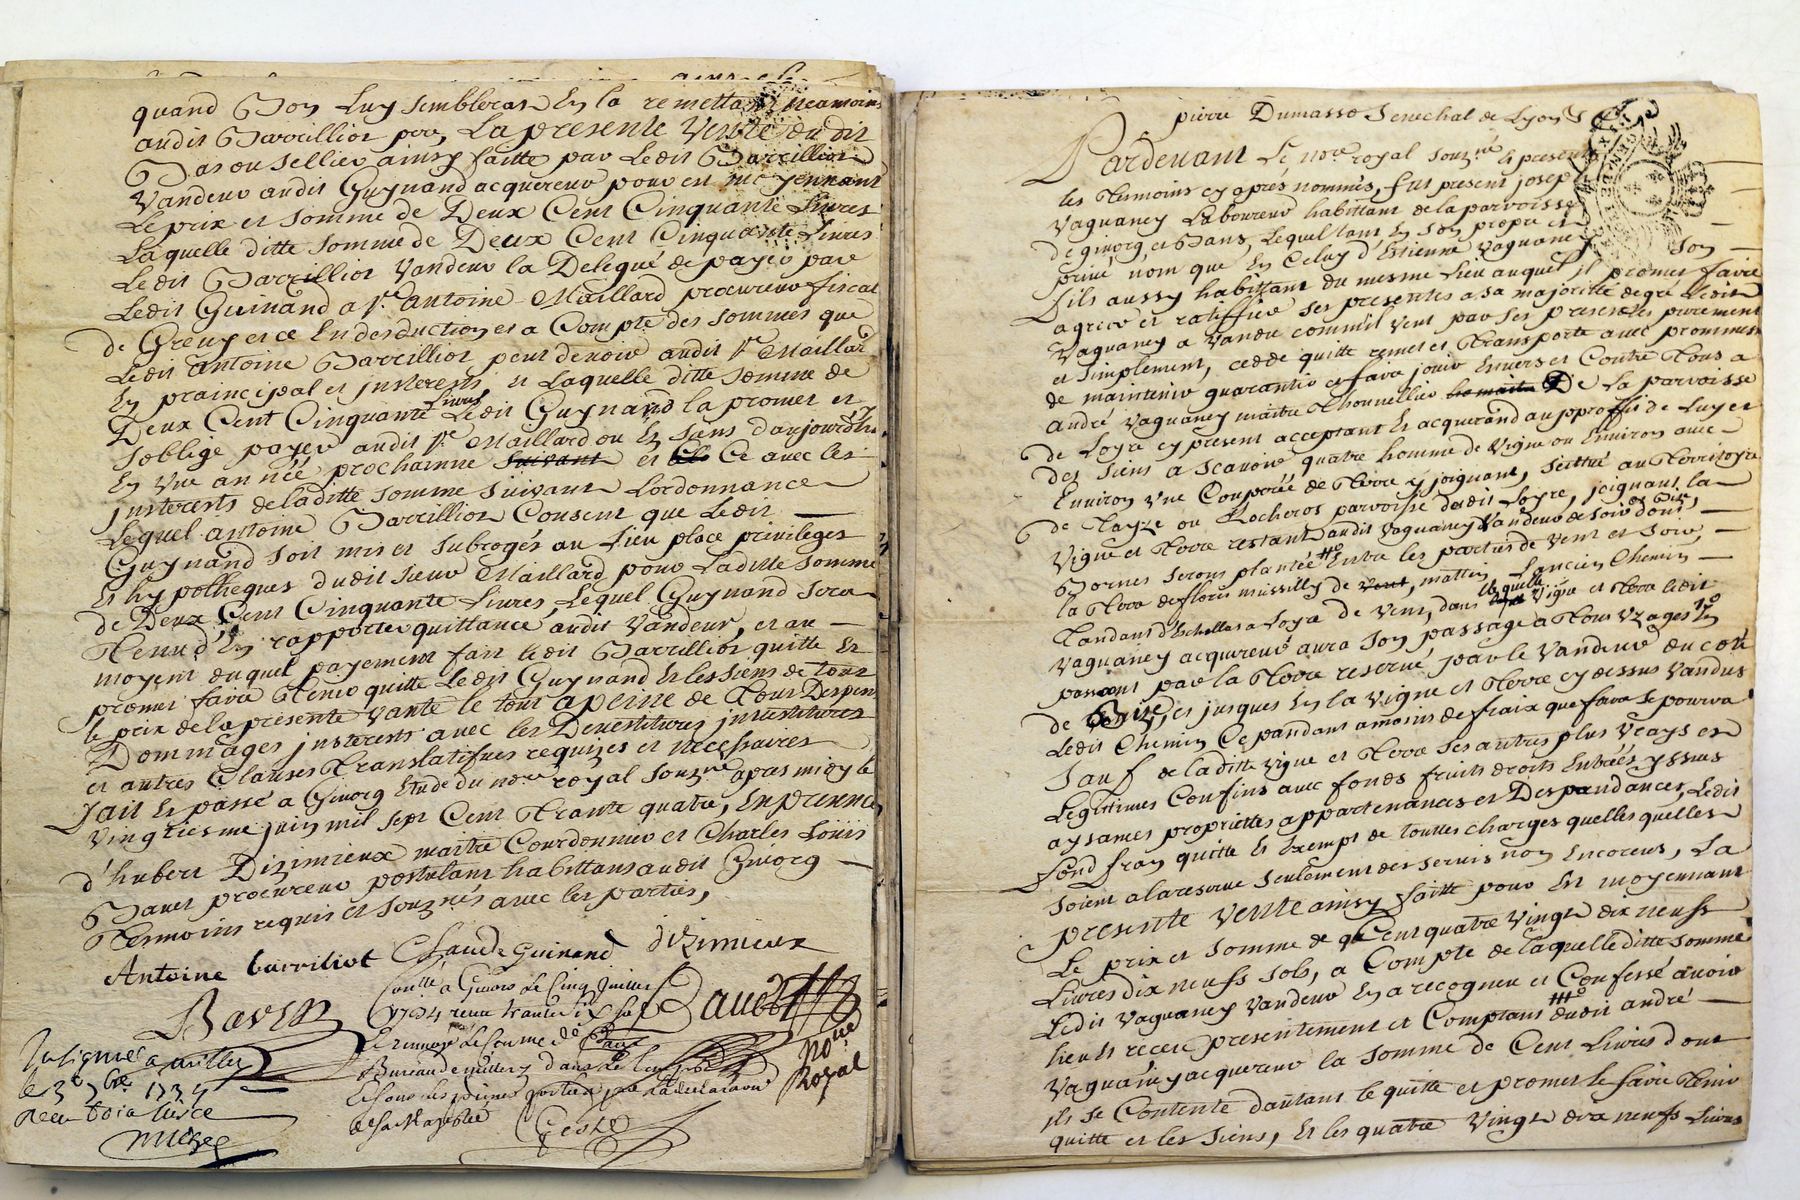 quand Bon Luy semblera En la remettant neamoins
audit Barrilliot pere, La presente Vente du dit
Bas ou sellier ainsy faitte par Ledit Barrilliot
Vandeur audit Guynand acquereur pour et moyennant
Le prix et somme de Deux Cent Cinquante Livres
Laquelle ditte somme de Deux Cent Cinquante Livres
Ledit Barrilliot Vandeur la Delegué de payer par
Ledit Guinand a Sr. Antoine Maillard procureur fiscal
de En desduction et a Compte des sommes que
Ledit Antoine Barrilliot peut devoir audit Sr. Maillard
En praincipal et jnterests, et Laquelle ditte somme de
Deux Cent Cinquante Livres Ledit Guynand la promet et
s'oblige payer audit Sr. Maillard ou Es siens d'aujourd'huy
En Une année prochainne suivant et Ce avec les
jnterests de laditte somme suivant Lordonnance
Lequel antoine Barrillion Consent que Ledit
Guynand soit mis et subrogés au Lieu place privileges
Et hypotheques dudit sieur Maillard pour Laditte somme
de Deux Cent Cinquante Livres, Lequel Guynand sera
Tenu d'En rapporter quittance audit Vandeur, et au
moyent duquel payement fait ledit Barrilliot quitte Et
promet faire Tenir quitte Ledit Guynand Et les siens de tout
le prix de la presente Vante le tout a peine de Tous Despens
Dommages jnterests avec les Devestitures jnvestitures
et autres Clauses Translatifves requizes et necessaires
Fait Et passé a Givorg Etude du nore. royal souzné. apres midy le
Vingtiesme juin mil sept Cent Trante quatre, En presence
d'hubert Dizimieux maitre Cordonnier et Charles Loüis
Bavet procureur postulant habittans audit Givorg
Tesmoins requis et souznés avec les parties,
Antoine barriliot Claude Guinand dizimieux
Bavet Bavet
nore Royal
Conllé a Givors Le Cinq juillet
1734 receu trante six sols
Insinué a milly
le 3e 7bre 1734
Receu trois livres
pierre Dumasso Senechal de Lyon
Pardevant Le nore royal souzné. et presents
les Temoins cy après nommés, fut present josep
Vaguaney Laboureur habittant de la parroisse
de givorg et Bans, Lequel tant En son propre et
privé nom que En Celuy d'Etienne Vaguaney son
fils aussy habittant du mesme Lieu auquel il promet faire
agreer et ratiffier ses presentes a sa majorité de gré Ledit
Vaguaney a Vandu comm'il Vent par ses presentes purement
et simplement, cedde quitte remet et Transporte avec prommesse
de maintenir guarantir et faire jouir Envers et Contre Tous a
andré Vaguaney maitre Thonnellier De La parroisse
de Loyre cy present acceptant Et acquerand au proffit de Luy et
des siens a scavoir quatre homme de Vigne ou Environ avec
Environ Une Couporée de Terre y joignant, scittué au Territoyre
de Tayze ou Rocheros parroisse dudit Loyre, joignant la
Vigne et Terre restant audit Vaguaney Vandeur de soir dont
Bornes seront plantée Entre les parties de Vent et soir,
la Terre de fleuris mussilly de Vent, mattin, Lancien Chemin
Tandant d'Echallas a Loya de Vent, dans laquelle Vigne et Terre ledit
Vaguaney acquereur aura son passage a Tous Uzages En
passant par la Terre reservé par le Vandeur du coté
de Bize, et jusques En la Vigne et Terre cy dessus Vandus
Ledit Chemin Ce pandant a moins de fraix que faire se pourra
Sauf de laditte Vigne et Terre ses autres plus Vrays et
Legittimes Confins avec fonds fruits droits Entrées yssues
aysances propriettes appartenances et Despandances, Ledit
fond fran quitte Et Exempt de touttes charges quelles quelles
soient a la reserve seulement des servis non Encorus, La
presente Vente ainsy faitte pour Et moyennant
Le prix et somme de Cent quatre Vingt dix neuff
Livres dix neufs sols, a Compte de laquelle ditte somme
Ledit Vaguaney Vandeur En a recogneu et Confessé avoir
heu Et receu presentement et Comptant dudit andré
Vaguaney acquereur la somme de Cent Livres dont
ils se Contente d'autant le quitte et promet le faire Tenir
quitte et les siens, Et les quatre Vingt dix neufs Livres